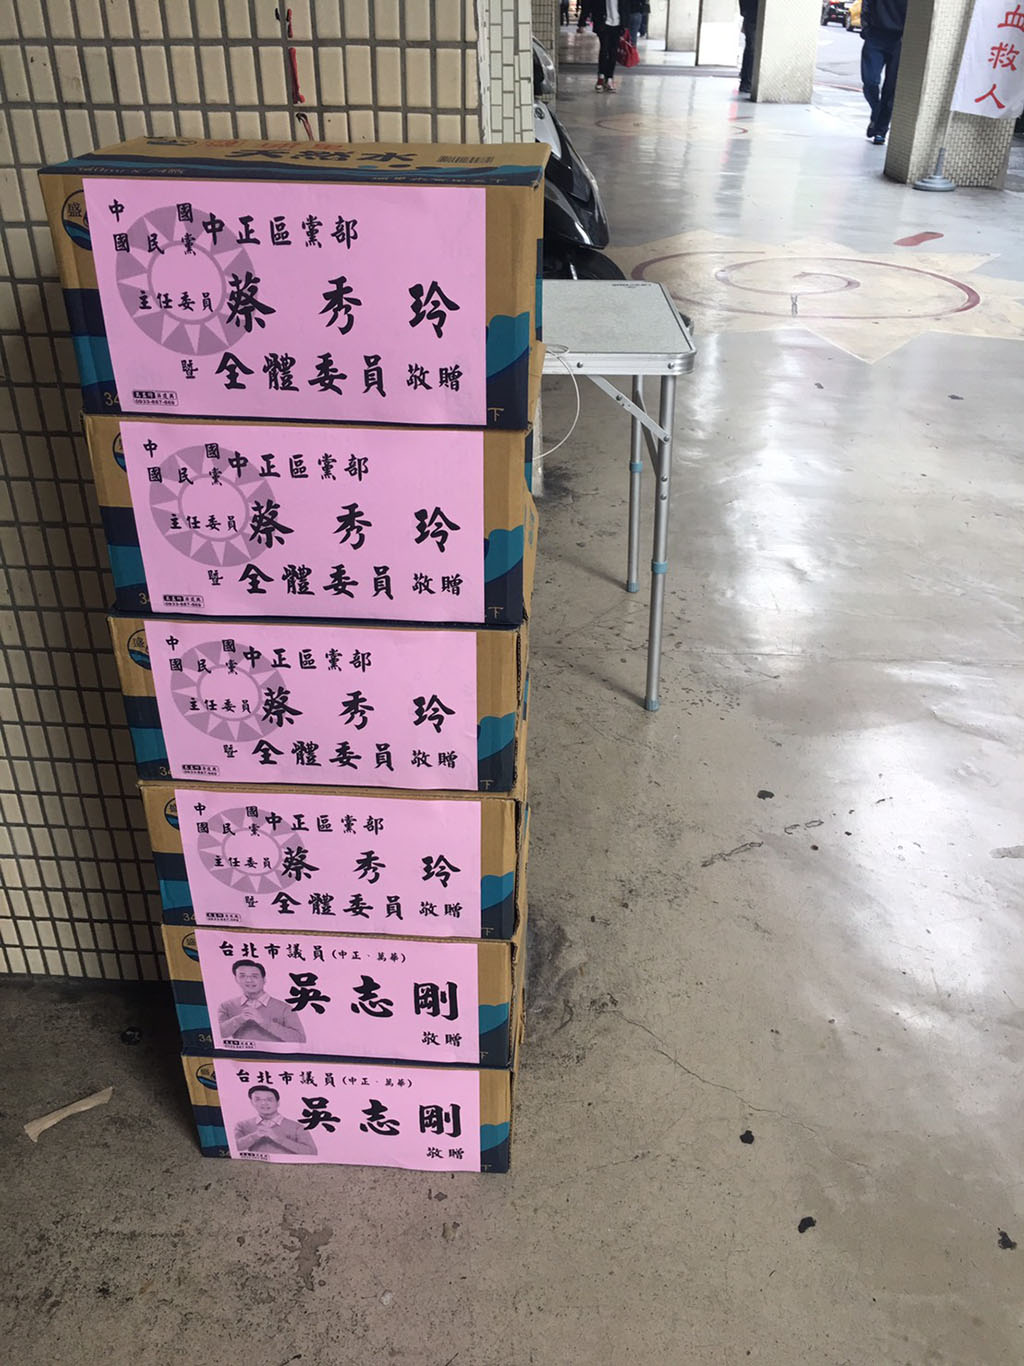 血
救
人
天然水
中國
國民黨
中正區黨部
主任委員 蔡秀玲
暨 全體委員 敬贈
0933-887-669
中國
國民黨
中正區黨部
主任委員 蔡秀玲
暨 全體委員 敬贈
中國
國民黨
中正區黨部
主任委員 蔡秀玲
暨 全體委員 敬贈
中國
國民黨
中正區黨部
主任委員 蔡秀玲
暨 全體委員 敬贈
台北市議員(中正、萬華)
吳志剛
敬贈
台北市議員(中正、萬華)
吳志剛
敬贈